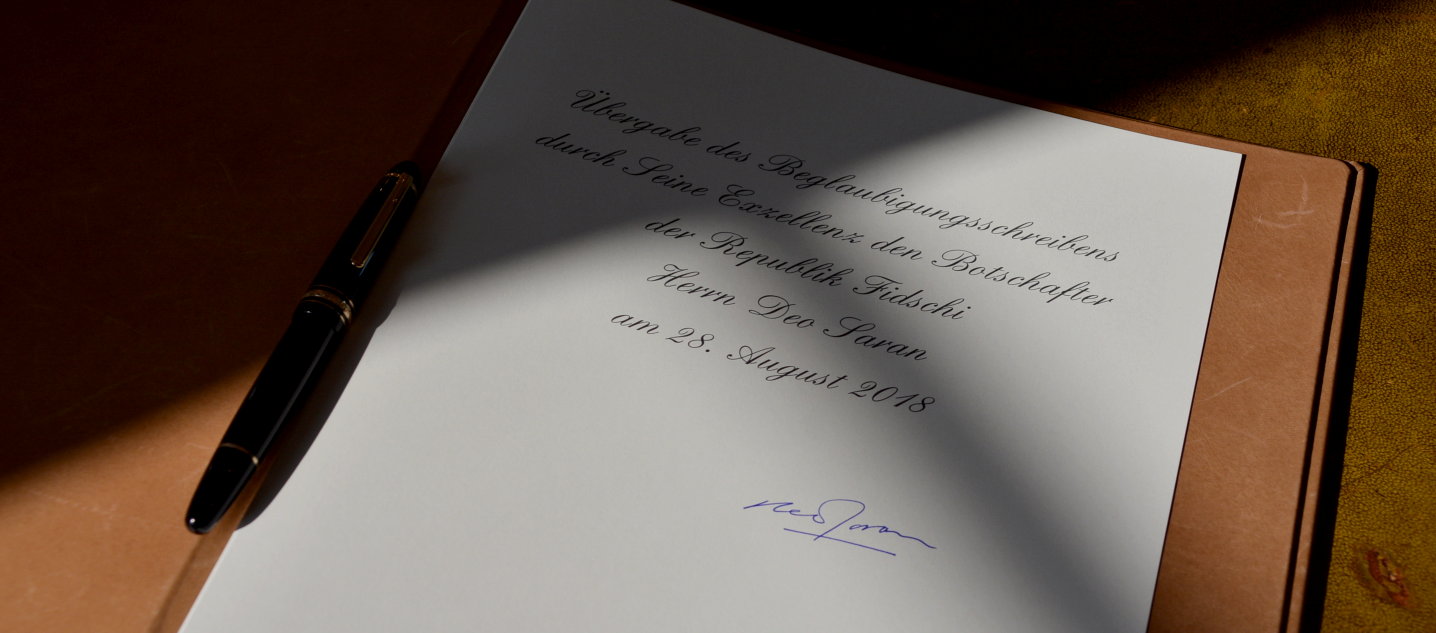 Übergabe des Beglaubigungsschreibens
durch Seine Exzellenz den Botschafter
der Republik Fidschi
Herrn Deo Saran
am 28. August 2018
Deo Saran